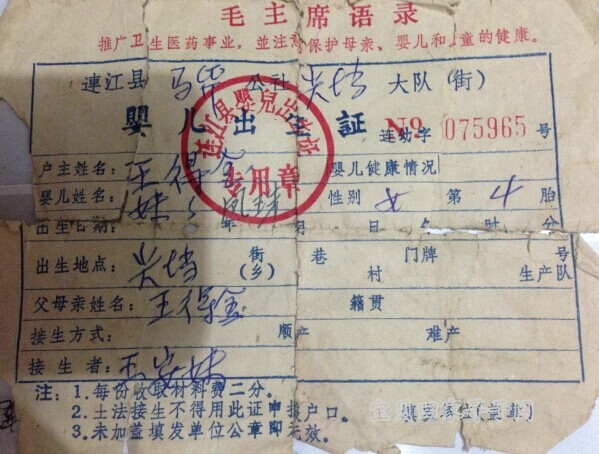 毛主席语录
推广卫生医药事业，並注意保护母亲、婴儿和儿童的健康。
連江县 马鼻 公社 大队(街)
嬰儿出生証 № 075965 号
连幼字
连江县嬰兒出生証
专用章
户主姓名：王得金 婴儿健康情况
婴儿姓名：妹 凤珠 性别 女 第 4 胎
出生日期： 年 月 日 午 时 分
出生地点： 街(乡) 巷 村 门牌 号 生产队
父母亲姓名：王得金 籍贯
接生方式： 顺产 难产
接生者：
注：1.每份收取材料费二分。
2.土法接生不得用此证申报户口。
3.未加盖填发单位公章即无效。
填发单位(盖章)